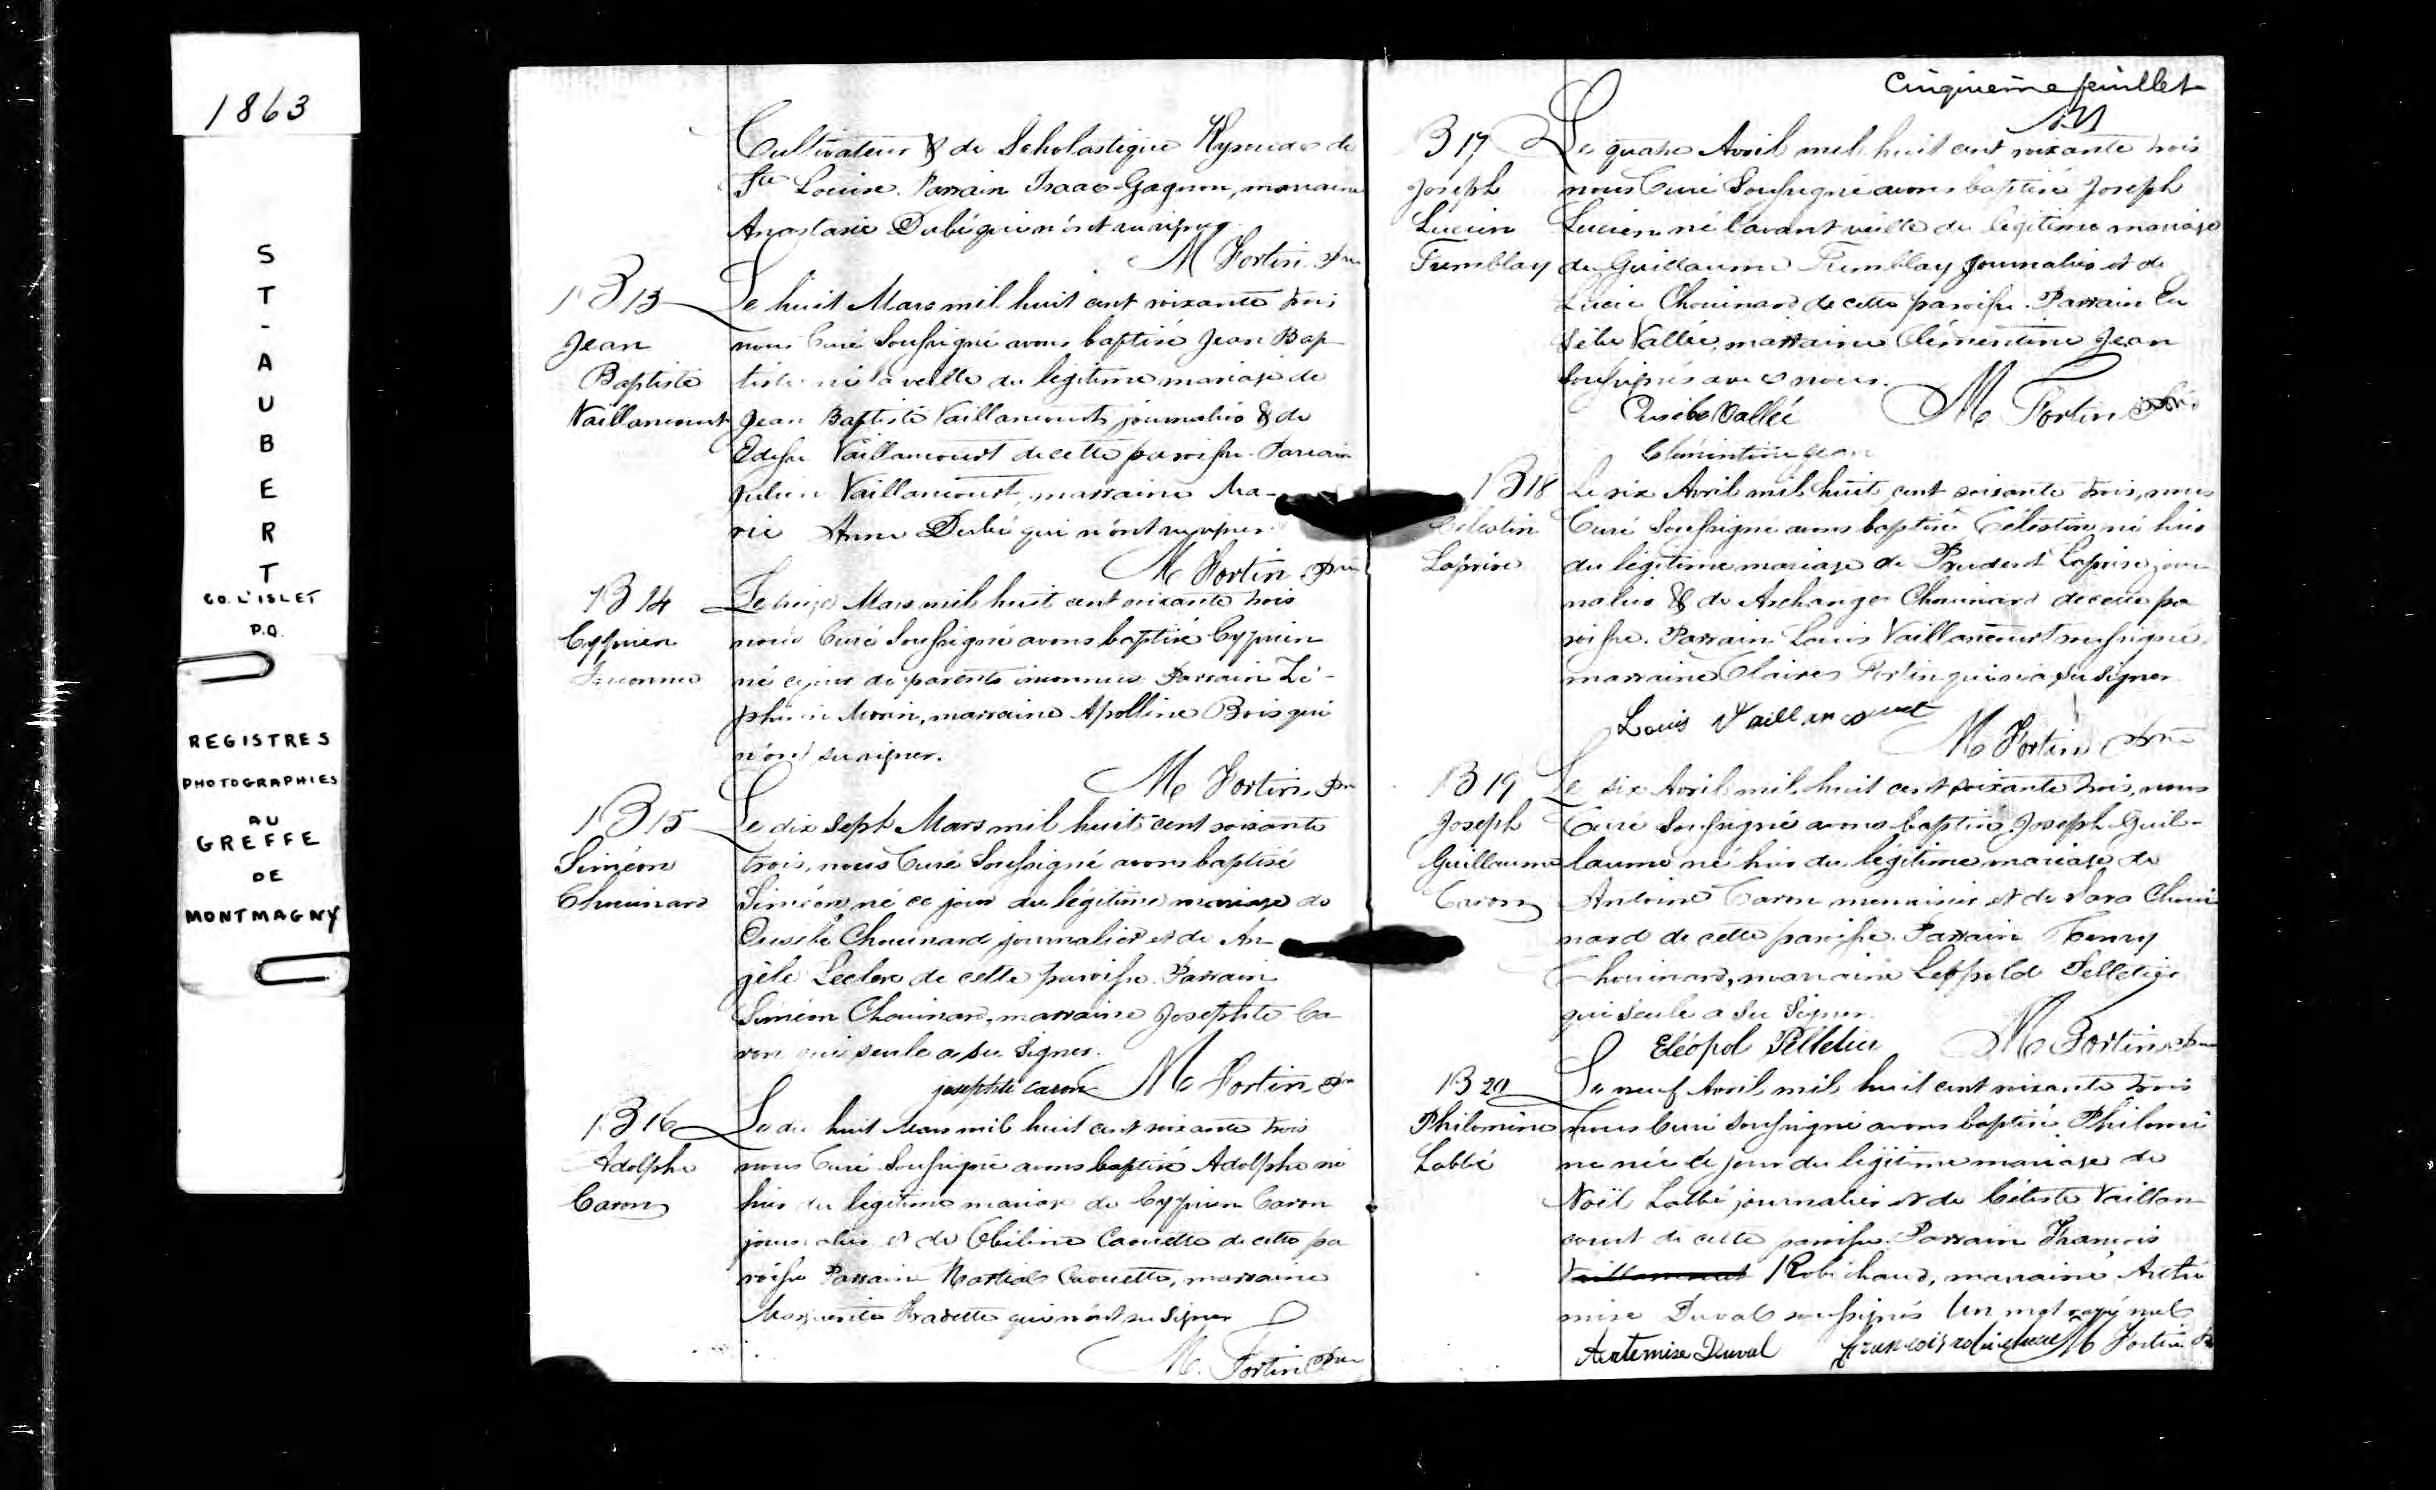 1863
ST-AUBERT
CO. L'ISLET
P.Q.
REGISTRES
PHOTOGRAPHIES
AU
GREFFE
DE
MONTMAGNY
Cultivateur & de Scholastique de
Ste Louise. Parrain Isaac Gagnon, marraine
Anastasie Dubé qui n'ont su signer
M Fortin Ptre
B 13
Jean
Baptiste
Vaillancourt
Le huit Mars mil huit cent soixante trois
nous Curé Soussigné avons baptisé Jean Bap
tiste né la veille du legitime mariage de
Jean Baptiste Vaillancourt journalier & de
Vaillancourt de cette paroisse. Parrain
Julien Vaillancourt, marraine Ma-
rie Anne Dubé qui n'ont su signer
M Fortin Ptre
B 14
Cyprien
Inconnu
Le Mars mil huit cent soixante trois
nous Curé Soussigné avons baptisé Cyprien
né ce jour de parents inconnus Parrain Zé-
phirin Morin, marraine Apolline Bois qui
n'ont su signer.
M Fortin Ptre
B 15
Siméon
Chouinard
Le dix Sept Mars mil huit cent soixante
trois, nous Curé Soussigné avons baptisé
Siméon né ce jour du légitime mariage de
Eusèbe Chouinard journalier et de An-
gèle Leclerc de cette paroisse. Parrain
Siméon Chouinard, marraine Josephte Ca
ron qui seule a su signer.
josephte caron M Fortin Ptre
B 16
Adolphe
Caron
Le dix huit Mars mil huit cent soixante trois
nous Curé Soussigné avons baptisé Adolphe né
hier du legitime mariage de Cyprien Caron
journalier et de Caouette de cette pa
roisse Parrain Martial Caouette, marraine
Marguerite Fradette qui n'ont su signer
M. Fortin Ptre
Cinquième feuillet
B 17
Joseph
Lucien
Tremblay
Le quatre Avril mil huit cent soixante trois
nous Curé Soussigné avons baptisé Joseph
Lucien né l'avant veille du legitime mariage
de Guillaume Tremblay Journalier et de
Lucie Chouinard de cette paroisse. Parrain Eu
sèbe Vallée, marraine Clémentine Jean
soussignés avec nous.
Eusèbe Vallée M Fortin Ptre
Clémentine jean
B 18
Célestin
Laprise
Le six Avril mil huit cent soixante trois, nous
Curé Soussigné avons baptisé Célestin né hier
du légitime mariage de Prudent Laprise jour
nalier & de Archange Chouinard de cette pa
roisse. Parrain Louis Vaillancourt soussigné,
marraine Claire Fortin qui n'a su signer
Louis Vaillancourt
M Fortin Ptre
B 19
Joseph
Guillaume
Caron
Le six Avril mil huit cent soixante trois, nous
Curé Soussigné avons baptisé Joseph Guil-
laume né hier du légitime mariage de
Antoine Caron menuisier et de Sara Choui
nard de cette paroisse. Parrain Henry
Chouinard, marraine Léopold Pelletier
qui seule a su signer.
Eléopol Pelletier M Fortin Ptre
B 20
Philomène
Labbé
Le neuf Avril mil huit cent soixante trois
nous Curé Soussigné avons baptisé Philomè
ne née ce jour du légitime mariage de
Noël Labbé journalier et de Céleste Vaillan
court de cette paroisse. Parrain François
Vaillancourt Robichaud, marraine Arthé
mise Duval soussignés Un mot rayé nul
Artemise Duval françois robichaud M Fortin Ptre